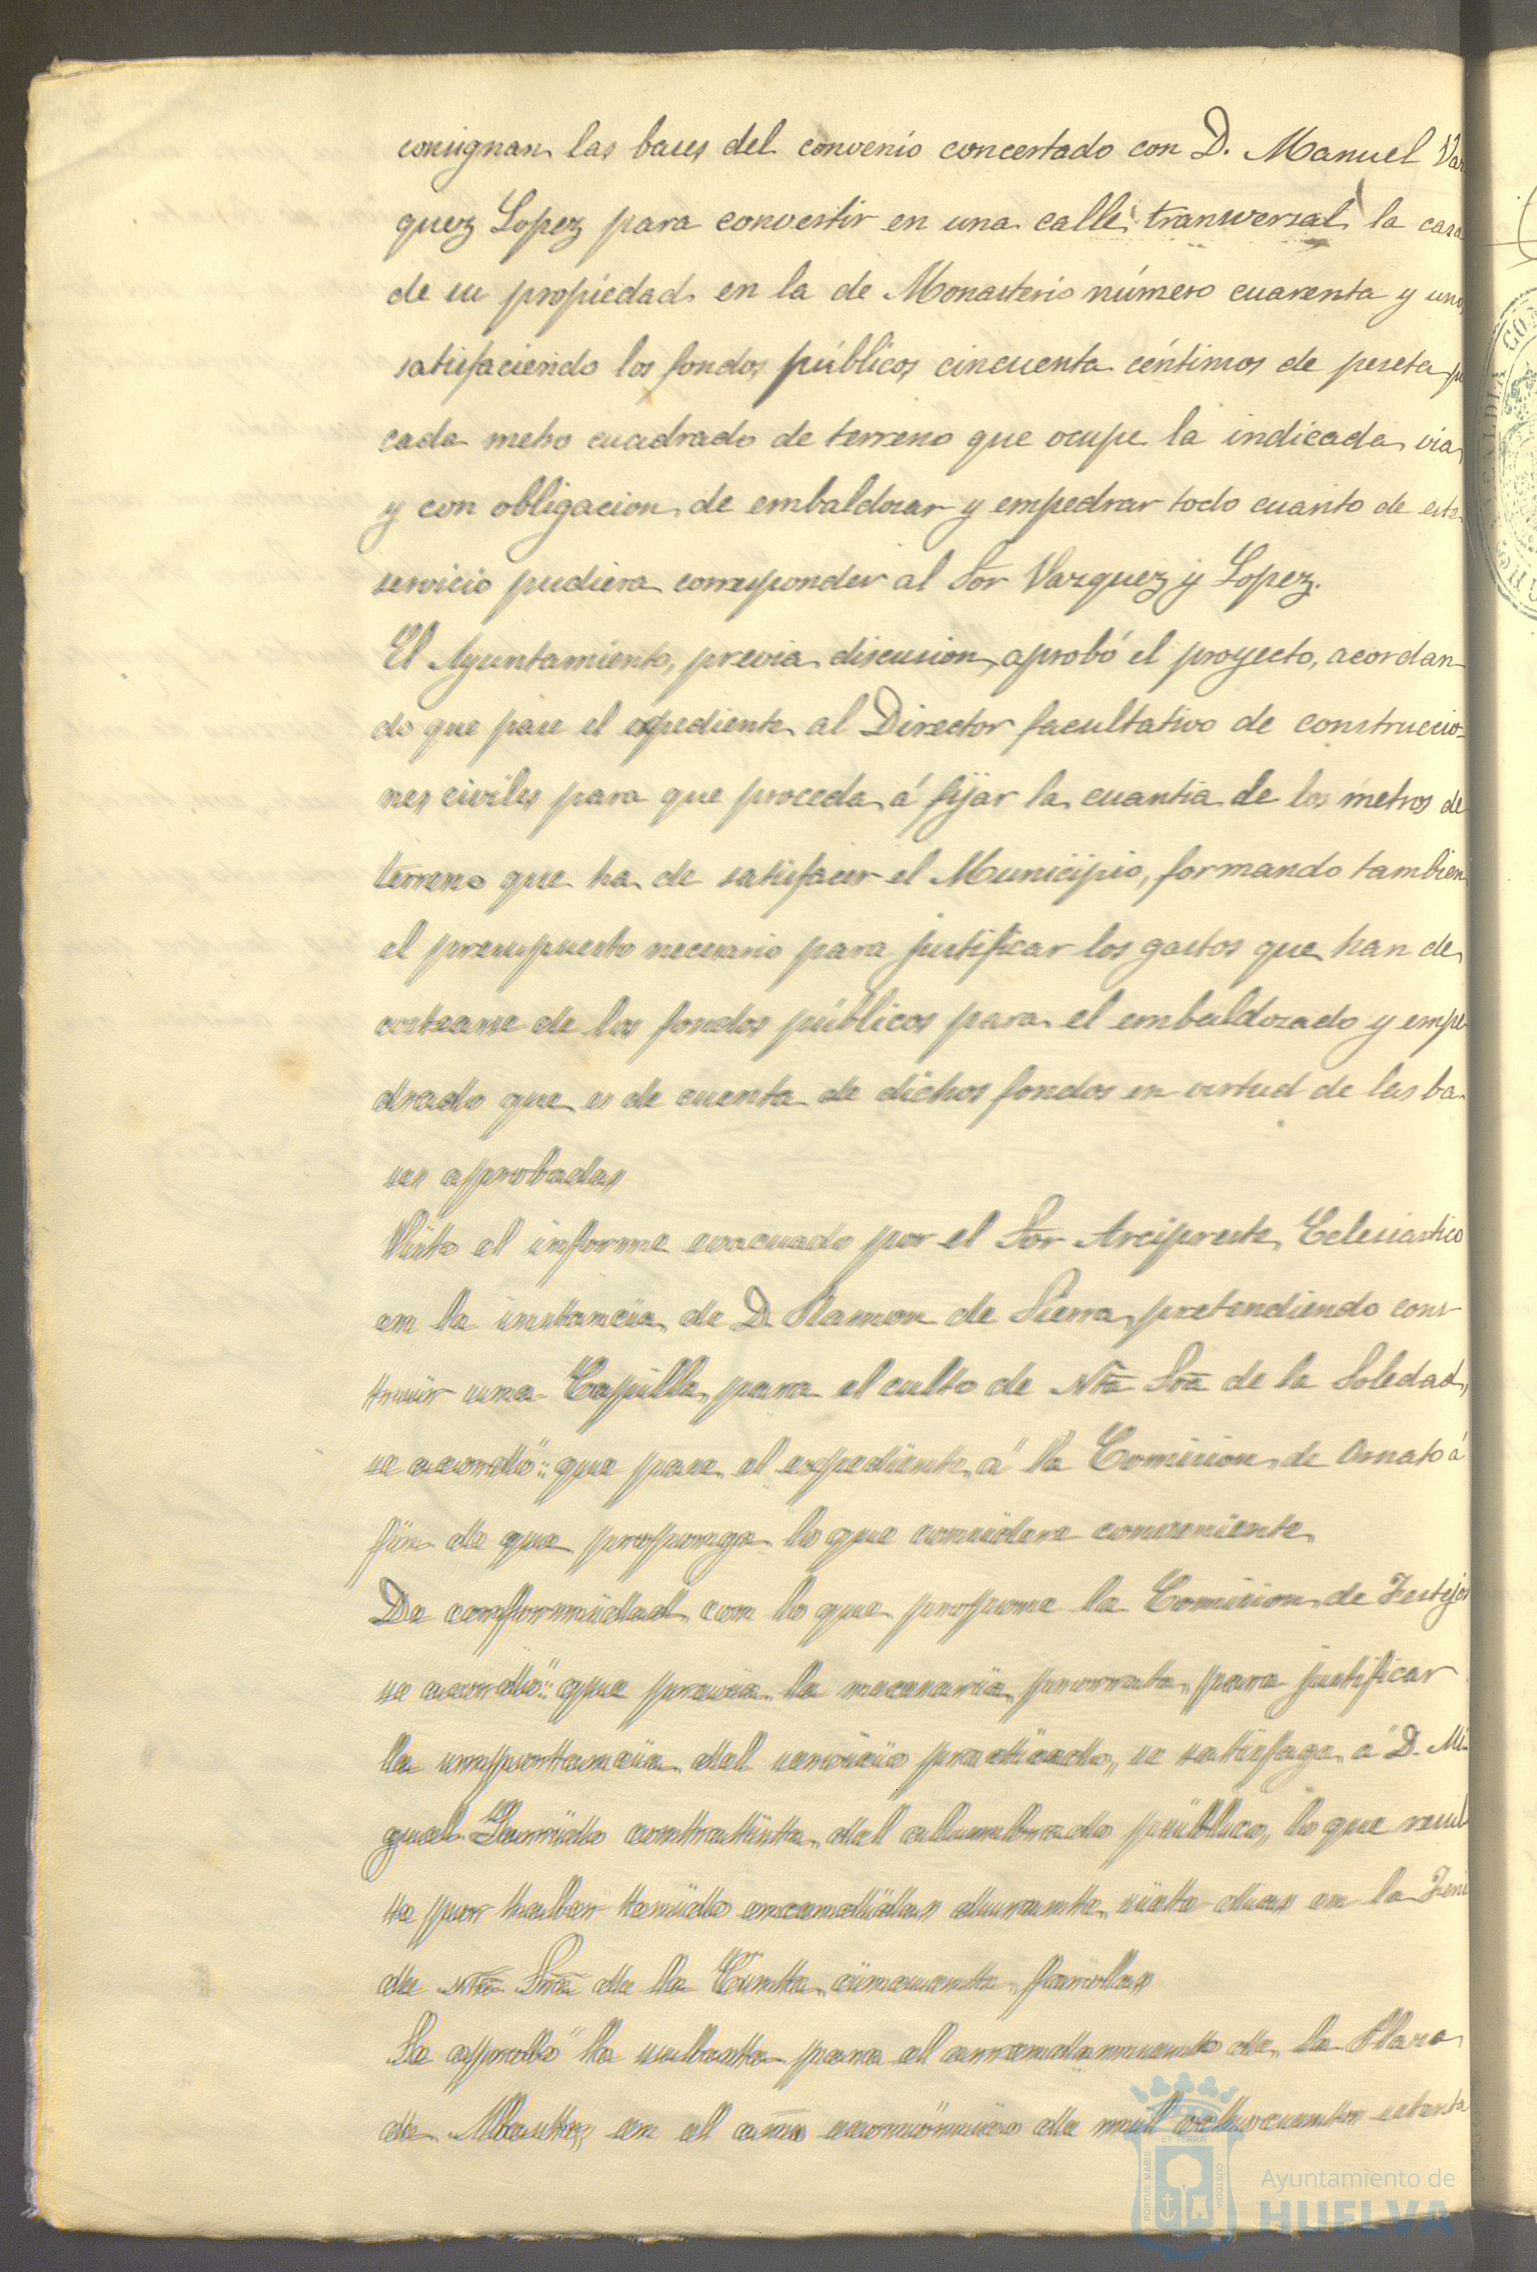 consignan las bases del convenio concertado con D. Manuel Vaz
quez Lopez para convertir en una calle transversal la casa
de su propiedad en la de Monasterio número cuarenta y uno,
satisfaciendo los fondos públicos cincuenta céntimos de peseta p
cada metro cuadrado de terreno que ocupe la indicada via
y con obligacion de embaldosar y empedrar todo cuanto de este
servicio pudiera corresponder al Sor Vazquez y Lopez.
El Ayuntamiento, previa discusion, aprobó el proyecto, acordan
do que pase el expediente al Director facultativo de construccio-
nes civiles para que proceda á fijar la cuantia de los metros de
terreno que ha de satisfacer el Municipio, formando tambien
el presupuesto necesario para justificar los gastos que han de
costearse de los fondos públicos para el embaldozado y empe
drado que es de cuenta de dichos fondos en virtud de las ba
ses aprobadas
Visto el informe evacuado por el Sor Arcipreste Eclesiastico
en la instancia de D. Ramon de Sierra, pretendiendo cons
truir una Capilla para el culto de Ntra Sra de la Soledad,
se acordó: que pase el expediente á la Comision de Ornato á
fin de que proponga lo que considere conveniente
De conformidad con lo que propone la Comision de Festejos
se acordó: que previa la necesaria prorrata para justificar
la importancia del servicio practicado, se satisfaga á D. Mi
guel Garrido contratista del alumbrado público, lo que resul
ta por haber tenido encendidas durante siete dias en la
de Ntra Sra de la Cinta cincuenta farolas
Se aprobó la subasta para el arrendamiento de la Plaza
de Abastos en el año económico de mil ochocientos setenta
ALCALDIA CO
PORTUS MARIS
ET TERRA
CUSTODIA
Ayuntamiento de
HUELVA